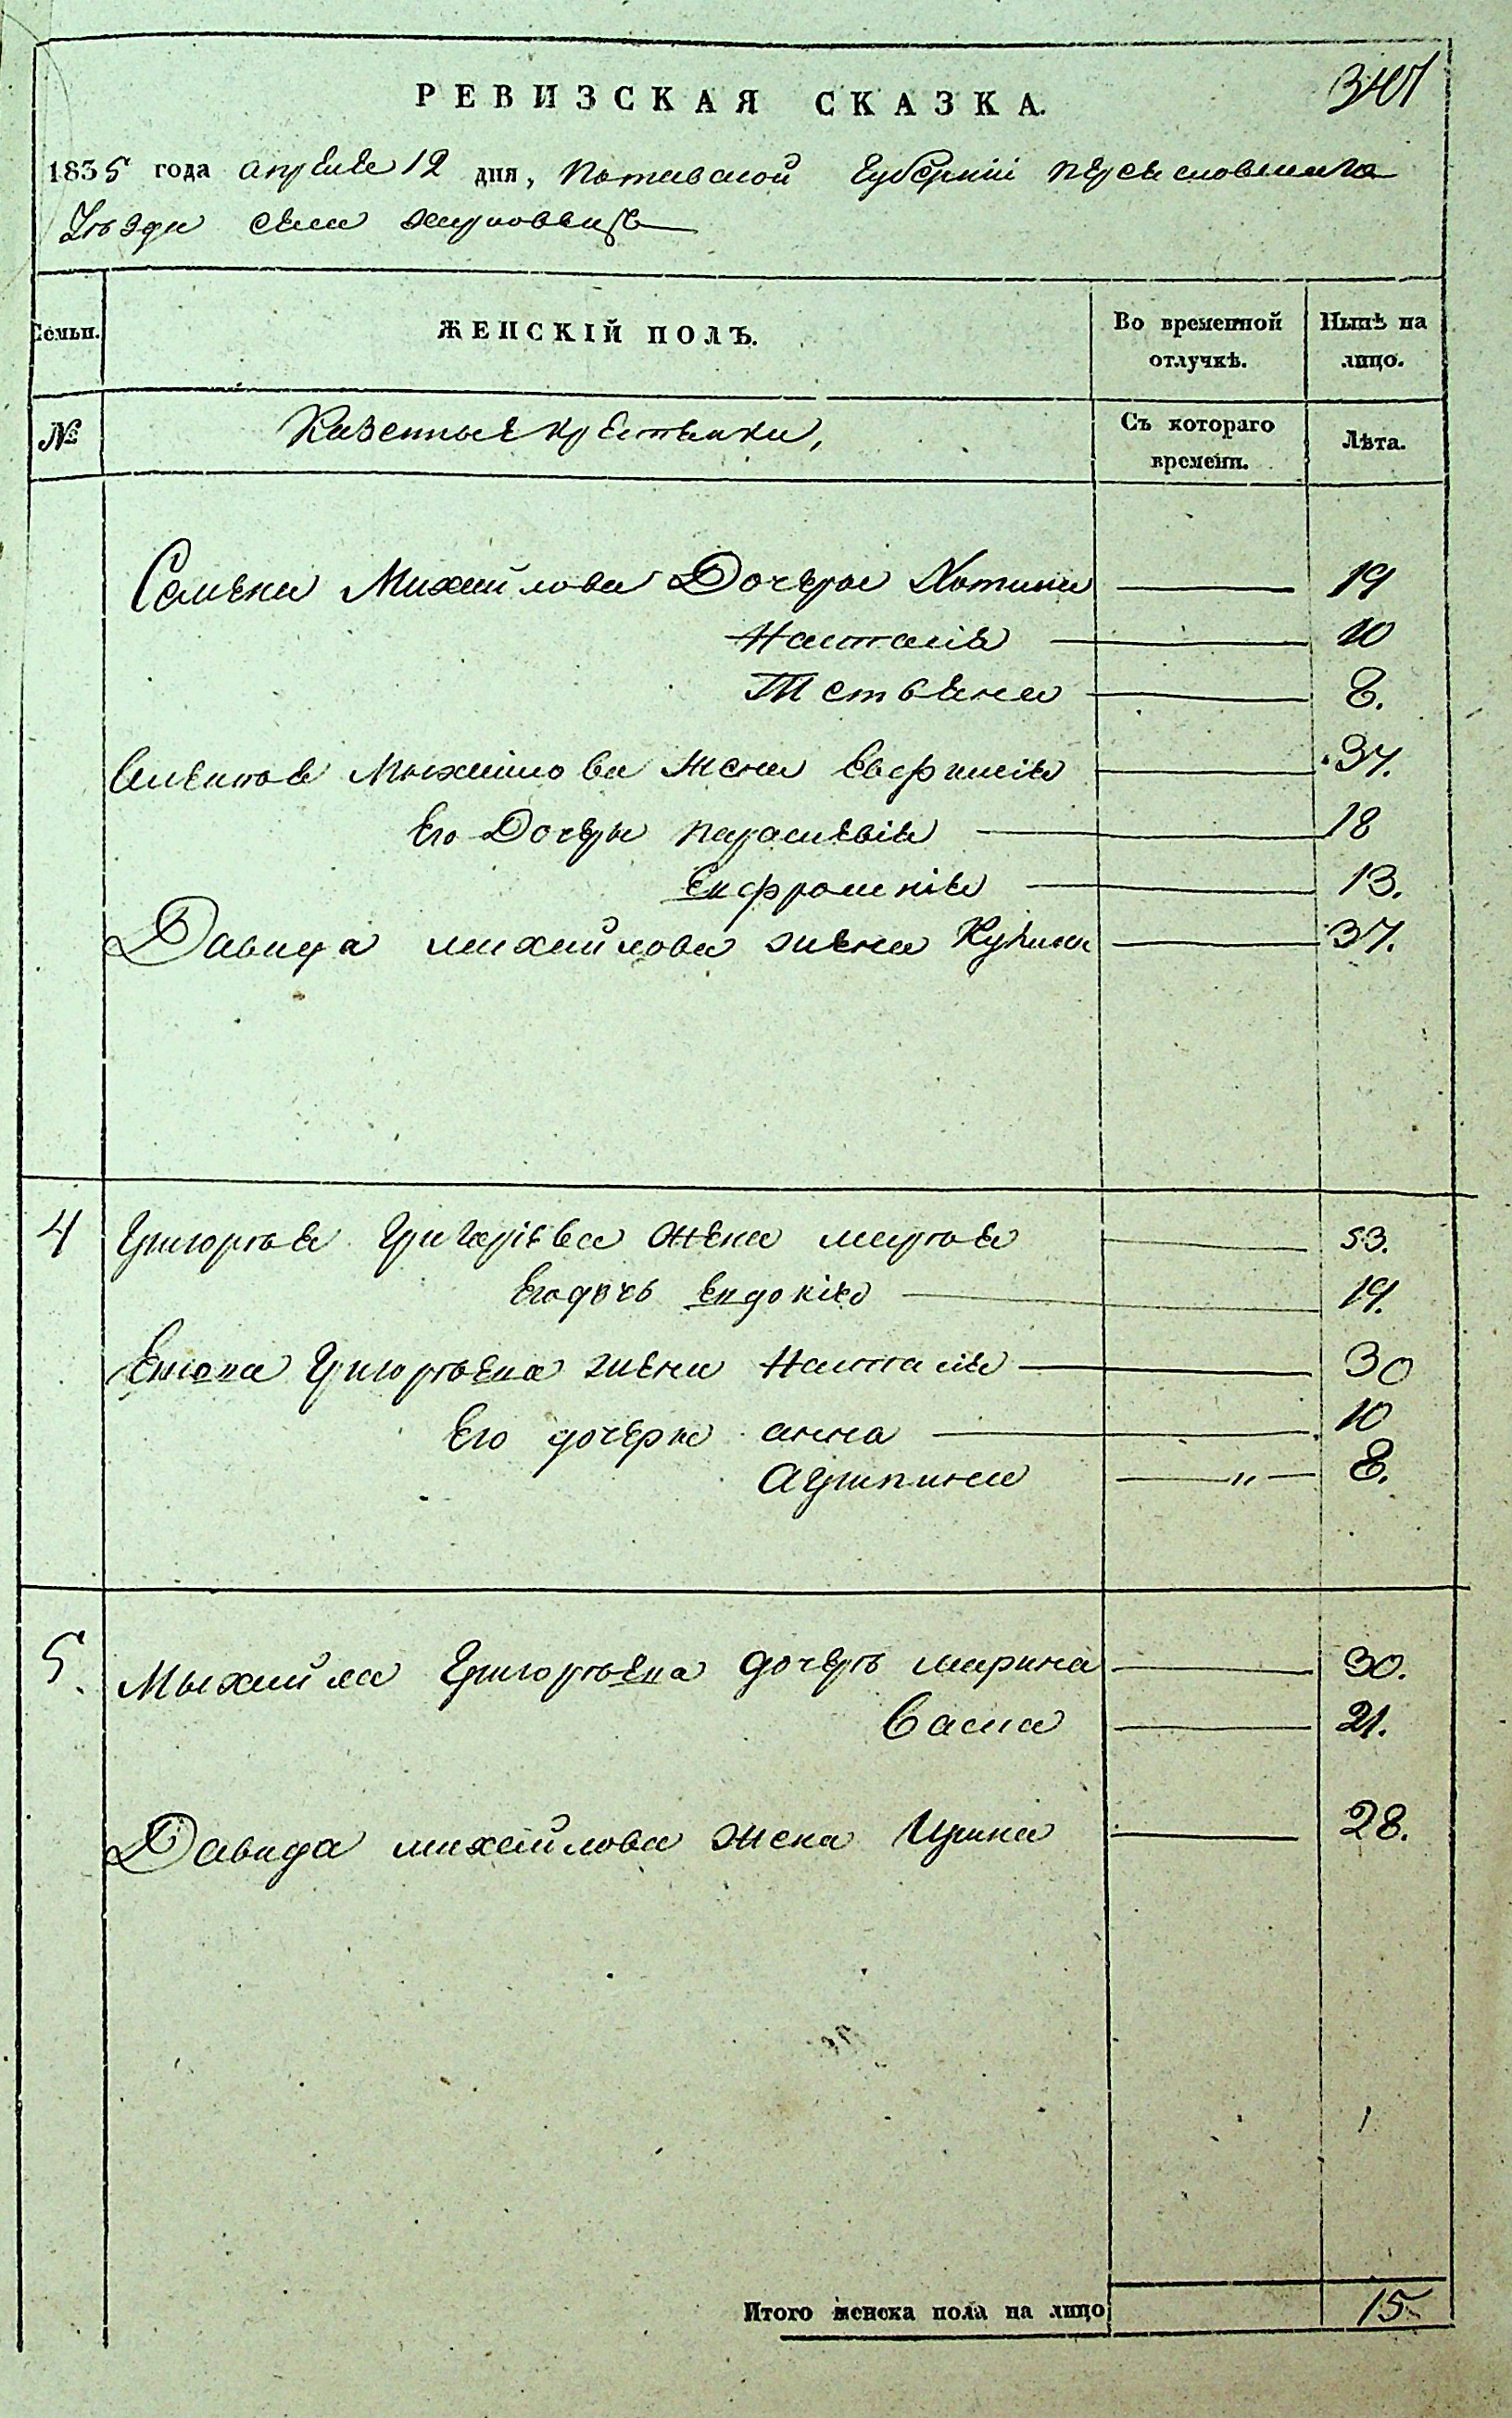 РЕВИЗСКАЯ СКАЗКА.
1835 года апреля 12 дня, Полтавской Губернии Переясловского
Уезда села
Семьи.
ЖЕНСКІЙ ПОЛЪ.
Во временной отлучкѣ.
Нынѣ на лицо.
№
Казенные крестьянки,
Съ котораго времени.
Лѣта.
Семена Михайлова Дочери 19
Наталія 10
Татьяна 8.
Михайлова Жена Евфимія 37.
Его Дочери Параскевія 18
Ефросинія 13.
Давида михайлова жена 37.
4 Григорія Григоріева жена марія 53.
Его дочь Евдокія 19.
Григорьева жена Наталія 30
Его дочери анна 10
Агрипина 8.
5. Михайла Григорьева дочерь марина 30.
Васса 21.
Давида михайлова жена Ирина 28.
Итого женска пола на лицо 15